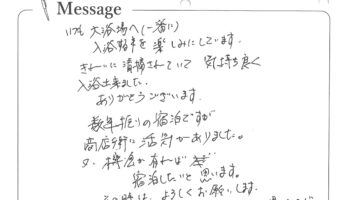 Message
いつも 大浴場へ(一番に)
入浴
を 楽しみにしています.
きれいに 清掃されていて 気持ち良く
入浴出来ました.
ありがとうございます.
数年振りの宿泊ですが
商店街に活気がありました。
又. 機会が有れば
宿泊したいと思います。
その時は、よろしくお願いします.